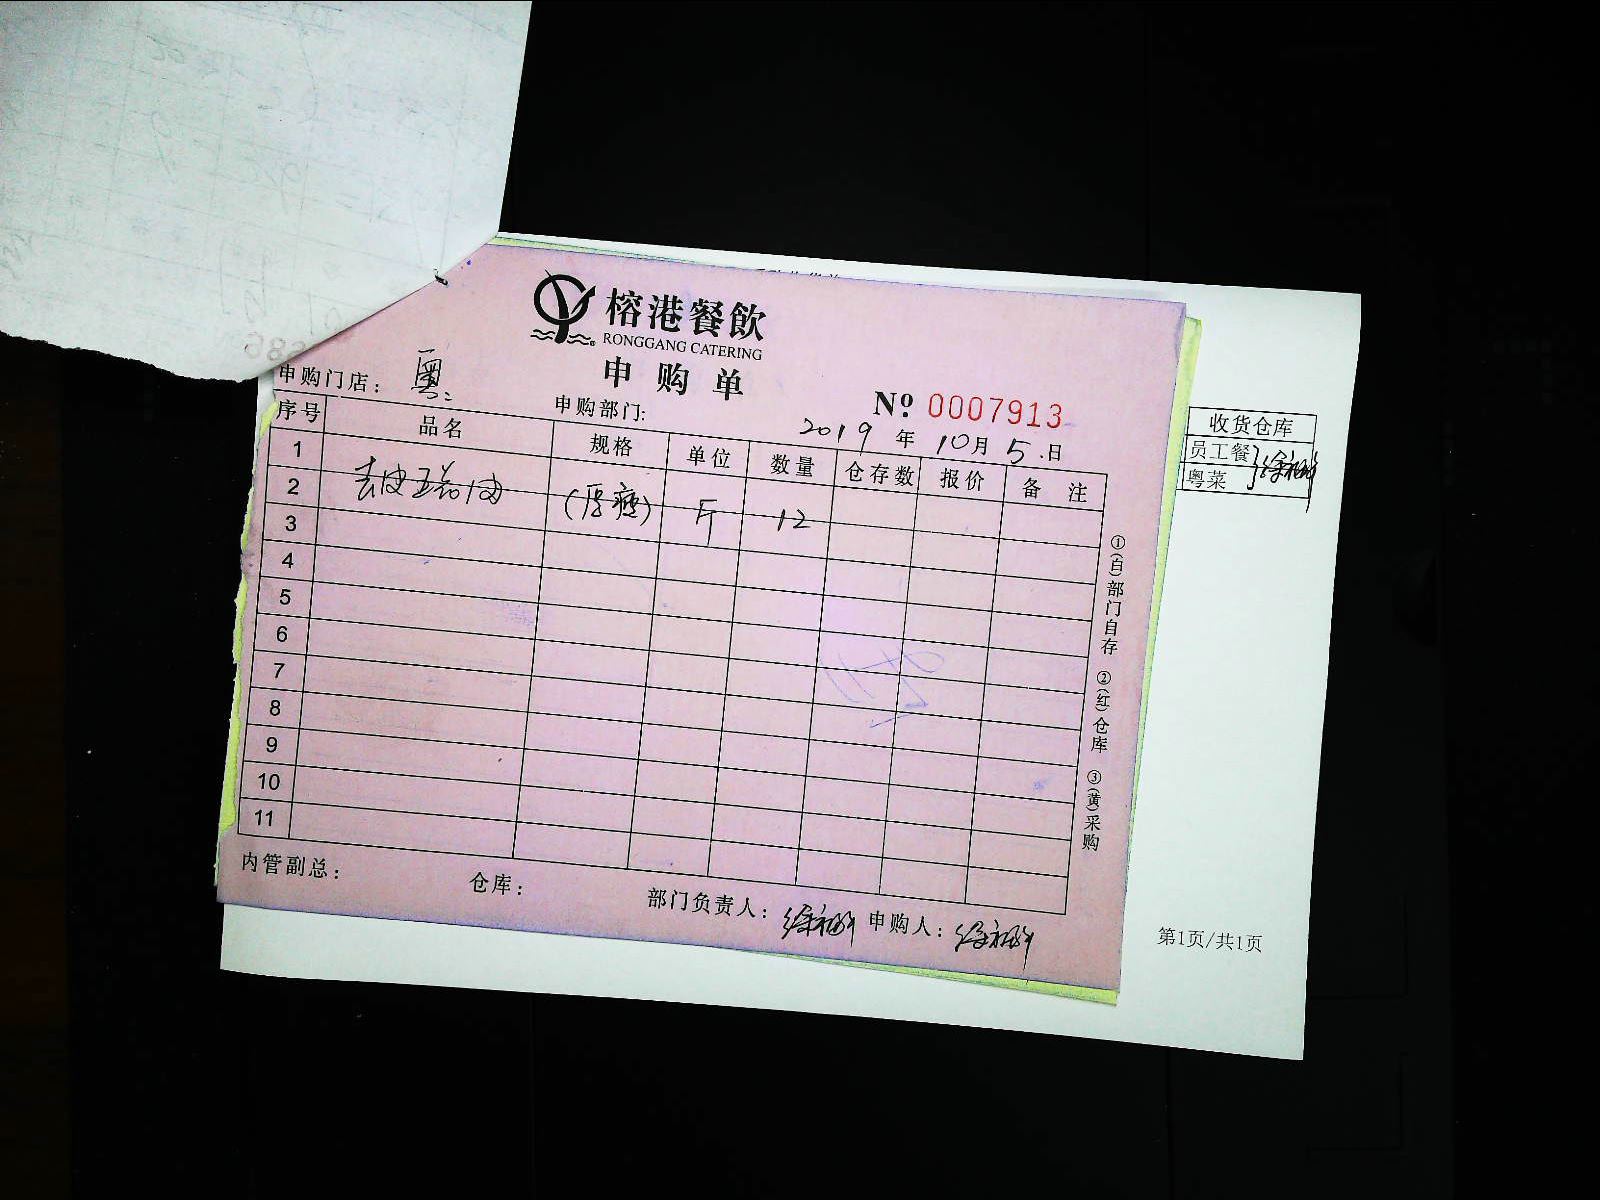 榕港餐飲
RONGGANG CATERING
申购单
申购门店： 粤
申购部门:
Nº 0007913
2019年10月5日
序号 品名 规格 单位 数量 仓存数 报价 备注
1
2 去皮五花肉 (厚瘦) 斤 12
3
4
5
6
7
8
9
10
11
内管副总： 仓库： 部门负责人： 申购人：
①(白)部门自存 ②(红)仓库 ③(黄)采购
收货仓库
员工餐
粤菜
第1页/共1页